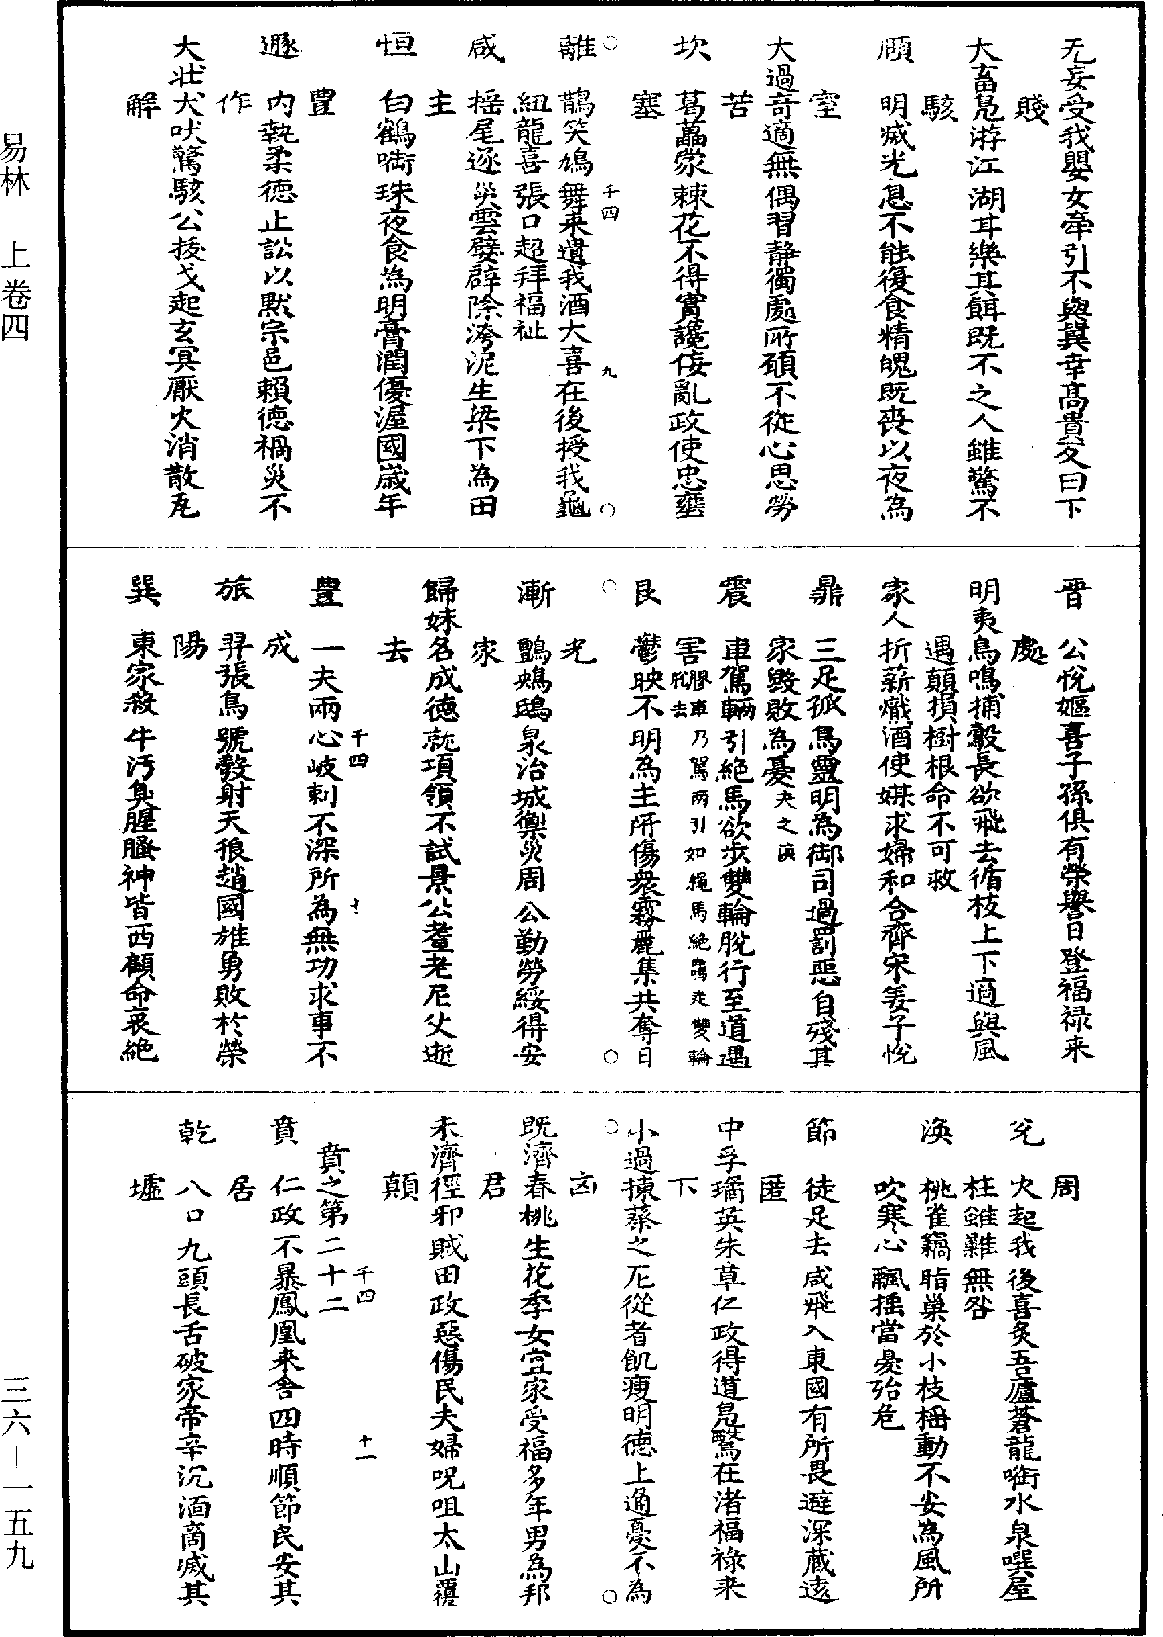 易林　上卷四
无妄受我嬰女牽引不與冀幸高貴反曰下
賤
大畜鳧游江湖耳樂其餌既不之人雖驚不
駭
頤　明滅光息不能復食精魄既喪以夜為
室
大過奇適無偶習靜獨處所碩不從心思勞
苦
坎　葛藟蒙棘花不得實讒佞亂政使忠壅
塞
離　鵲笑鳩舞来遺我酒大喜在後授我龜
紐龍喜張口超拜福祉
千四
九
咸　揺尾逐災雲嬖辟除洿泥生梁下為田
主
恒　白鶴㗸珠夜食為明膏潤優渥國歲年
豊
遯　内執柔德止訟以黙宗邑賴德禍災不
作
大壮犬吠驚駭公授戈起玄冥厭火消散瓦
解
晋　公悅嫗喜子孫俱有榮譽日登福禄来
處
明夷鳥鳴捕鷇長欲飛去循枝上下適與風
遇顛損樹根命不可救
家人折薪熾酒使媒求婦和合齊宋姜子悅
鼎　三足孤烏靈明為御司過罰惡自殘其
家毀敗為憂
震　車駕輛引絶馬欲步雙輪脫行至道遇
害膠車乃駕兩引如繩馬絶走雙輪
艮　鬱映不明為主所傷衆霧麗集共奪日
光
漸　鸜鵒鴟梟治城禦災周公勤勞綏得安
家
歸妹名成德就項領不試景公耋老尼父逝
去
豊　一夫兩心岐刺不深所為無功求事不
成
千四
十
旅　羿張烏號彀射天狼趙國雄勇敗於榮
陽
巽　東家殺牛汚臭腥臊神皆西顧命衰絶
周
兌　火起我後喜炙吾廬蒼龍㗸水泉噀屋
柱雖難無咎
渙　桃雀竊脂巢於小枝搖動不安為風所
吹寒心飄搖當憂殆危
節　徒足去咸飛入東國有所畏避深藏遠
匿
中孚璚英朱草仁政得道鳧鷖在渚福祿来
下
小過揀蔡之厄從者飢瘦明德上通憂不為
凶
既濟春桃生花季女宜家受福多年男為邦
君
未濟徑邪賊田政惡傷民夫婦呪咀太山覆
顛
賁之第二十二
千四
十一
賁　仁政不暴鳳凰来舍四時順節民安其
居
乾　八口九頭長舌破家帝辛沉湎商滅其
墟
三六－一五九